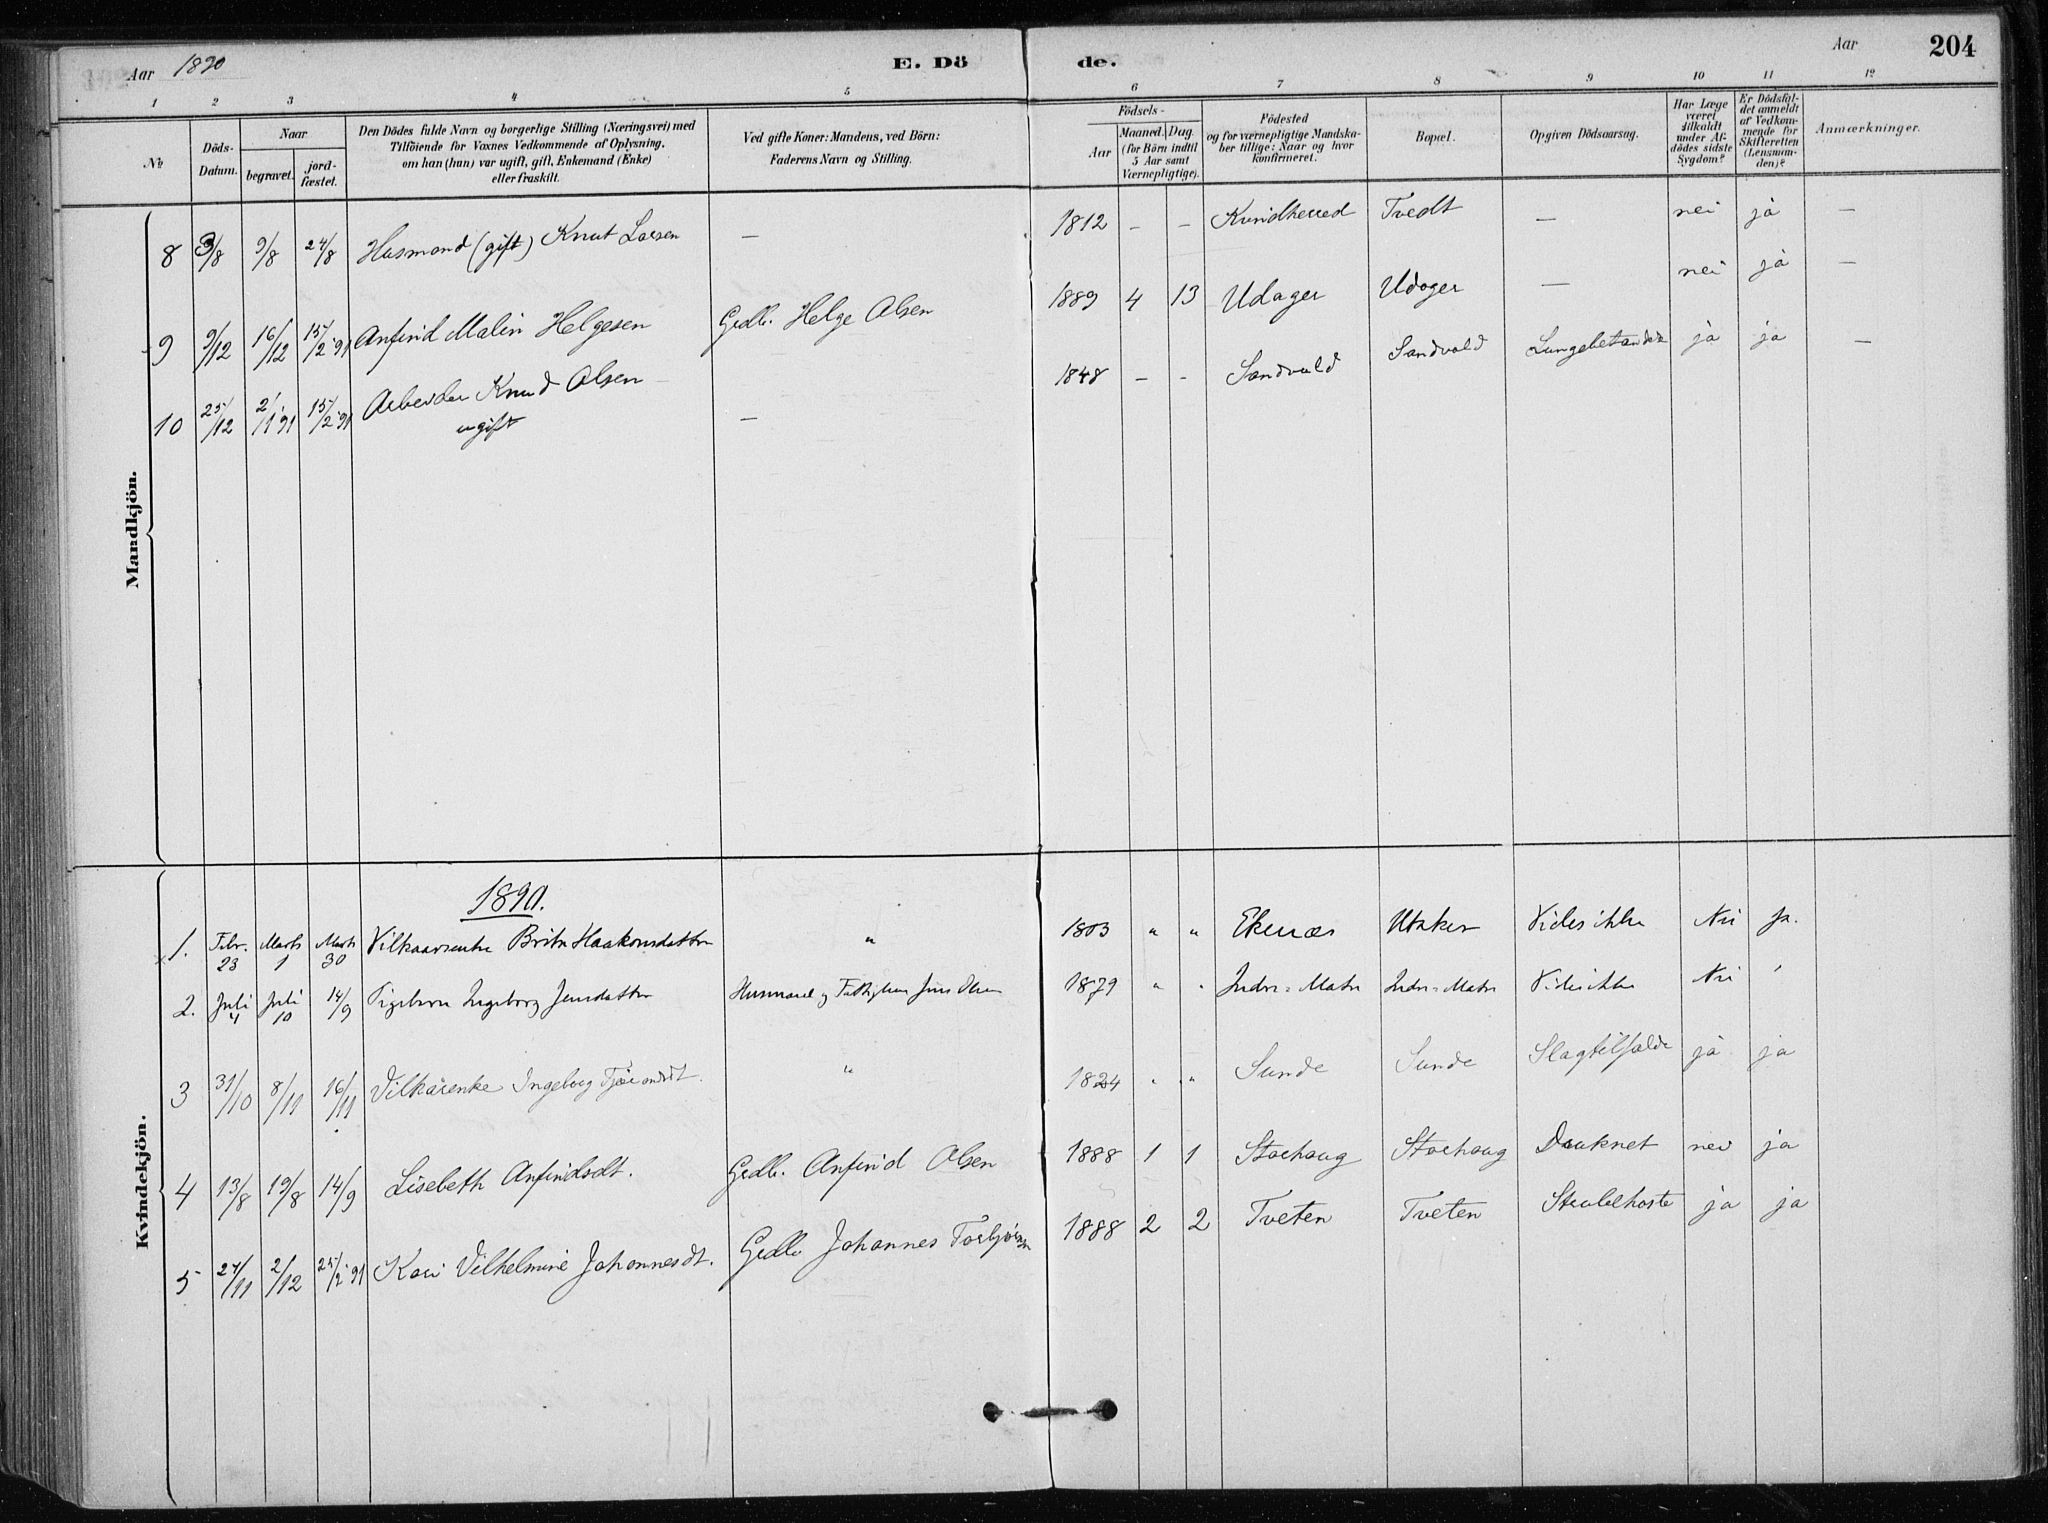 Aar 1890 E. Dö de. Aar 204
1 2 3 4 5 6 7 8 9 10 11 12
№
Döds-Datum.
Naar
begravet. jordfæstet.
Den Dödes fulde Navn og borgerlige Stilling (Næringsvei) med
Tilföiende for Voxnes Vedkommende af Oplysning,
om han (hun) var ugift, gift, Enkemand (Enke)
eller fraskilt.
Ved gifte Koner: Mandens, ved Börn:
Faderens Navn og Stilling.
Födsels-
Aar
Maaned. Dag.
(for Börn indtil
5 Aar samt
Værnepligtige).
Födested
og for værnepligtige Mandska-
ber tillige: Naar og hvor
konfirmeret.
Bopæl.
Opgiven Dödsaarsag.
Har Læge
været
tilkaldt
under Af-
dödes sidste
Sygdom?
Er Dödsfal-
det anmeldt
af Vedkom-
mende for
Skifteretten
(Lensman-
den)?
Anmærkninger.
Mandkjön.
8 3/8 9/8 24/8 Husmand (gift) Knut Larsen — 1812 — — Kvindherred Tvedt — nei ja —
9 9/12 16/12 15/2 91 Anfind Malin Helgesen Grdb. Helge Olsen 1889 4 13 Udager Udager — nei ja —
10 25/12 2/1 91 15/2 91 Arbeider Knud Olsen — 1848 — - Sandvold Sandvold Lungebetændelse ja ja —
ugift —
Kvindekjön.
1890.
1. Febr. 23 Marts 1 Marts 30 Vilkaarsenke Brita Haakonsdatter " 1803 " " Ekenæs Utaker Vides ikke Nei ja.
2. Juli 4 Juli 10 14/9 Pigebarn Ingeborg Jensdatter Husmand og Jens Olsen 1879 " " Indre-Matre Indre-Matre Vides ikke Nei
3 31/10 8/11 16/11 Vilkårenke Ingeborg " 1824 " " Sunde Sunde Slagtilfælde ja ja
4 13/8 19/8 14/9 Lisebeth Anfindsdt. Grdb. Anfind Olsen 1888 1 1 Storhaug Storhaug Druknet nei ja
5 27/11 2/12 25/2 91 Kari Vilhelmine Johannesdt. Grdb Johannes Torbjörnsen 1888 2 2 Tveten Tveten Strubehoste ja ja